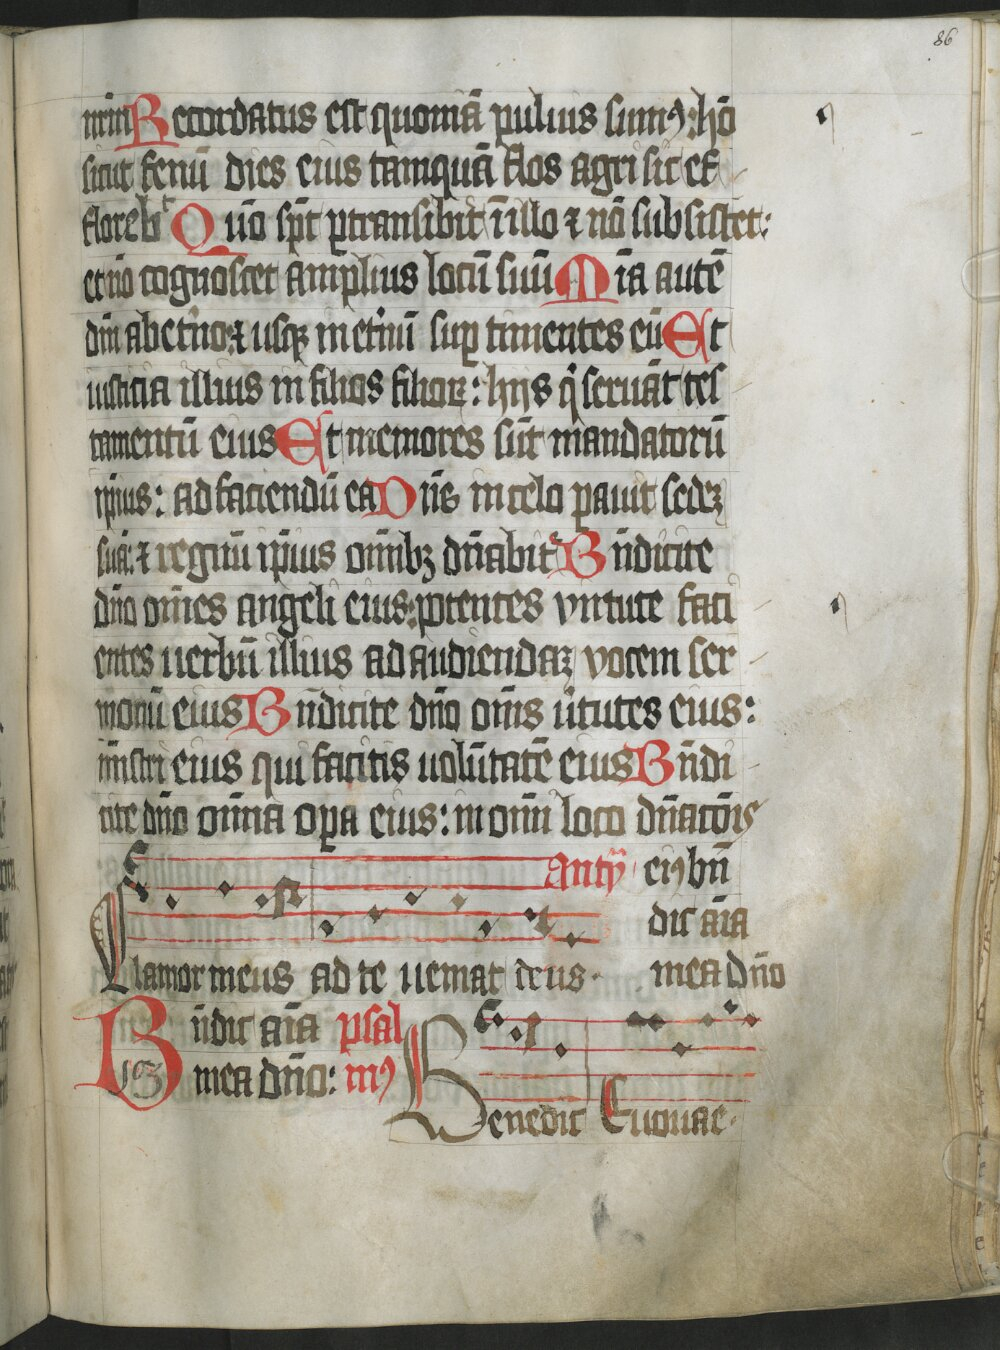 86
nrm̄ Recordatus est quoniā puluis sumꝯ: hō
sicut fenū dies eius tamquā flos agri sic ef
florebit Qm̄o sp̄c ꝑtransibit ī illo ⁊ nō subsistet:
et nō cognoscet amplius locū suū Mīa autē
dn̄i ab et̄no: ⁊ usqꝫ in et̄nū suꝑ timentes eū Et
iusticia illius in filios filioꝝ: hijs q̄ seruāt tes
tamentū eius Et memores sūt mandatorū
ip̄ius: ad faciendū ea Dn̄s in celo ꝑauit sedeꝫ
suā: ⁊ regnū ip̄ius om̄ibꝫ dn̄abit᷑ Bn̄dicite
dn̄o om̄es angeli eius: potentes virtute faci
entes uerbū illius ad audiendaꝫ vocem ser
monū eius Bn̄dicite dn̄o om̄s ūtutes eius:
mīstri eius qui facitis uolūtatē eius Bn̄di
cite dn̄o om̄ia oꝑa eius: in om̄i loco dn̄acōis
Anty̅ eiꝯ bn̄
dic aīa
Clamor meus ad te ueniat deus mea dn̄o
Bn̄dic aīa psal
103 mea dn̄o: mꝯ
Benedic Euouae